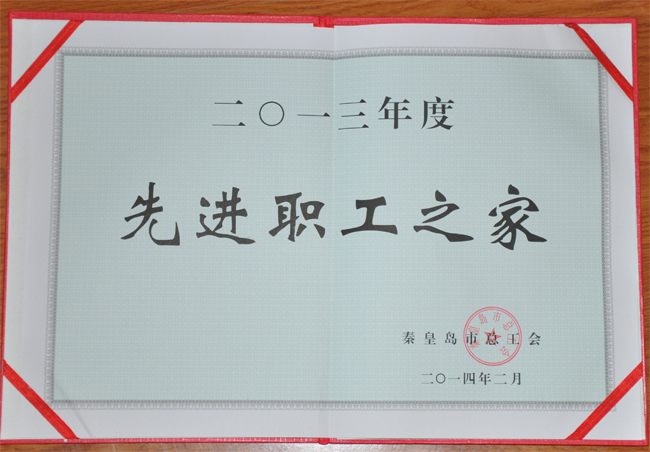 二〇一三年度
先进职工之家
秦皇岛市总工会
二〇一四年二月